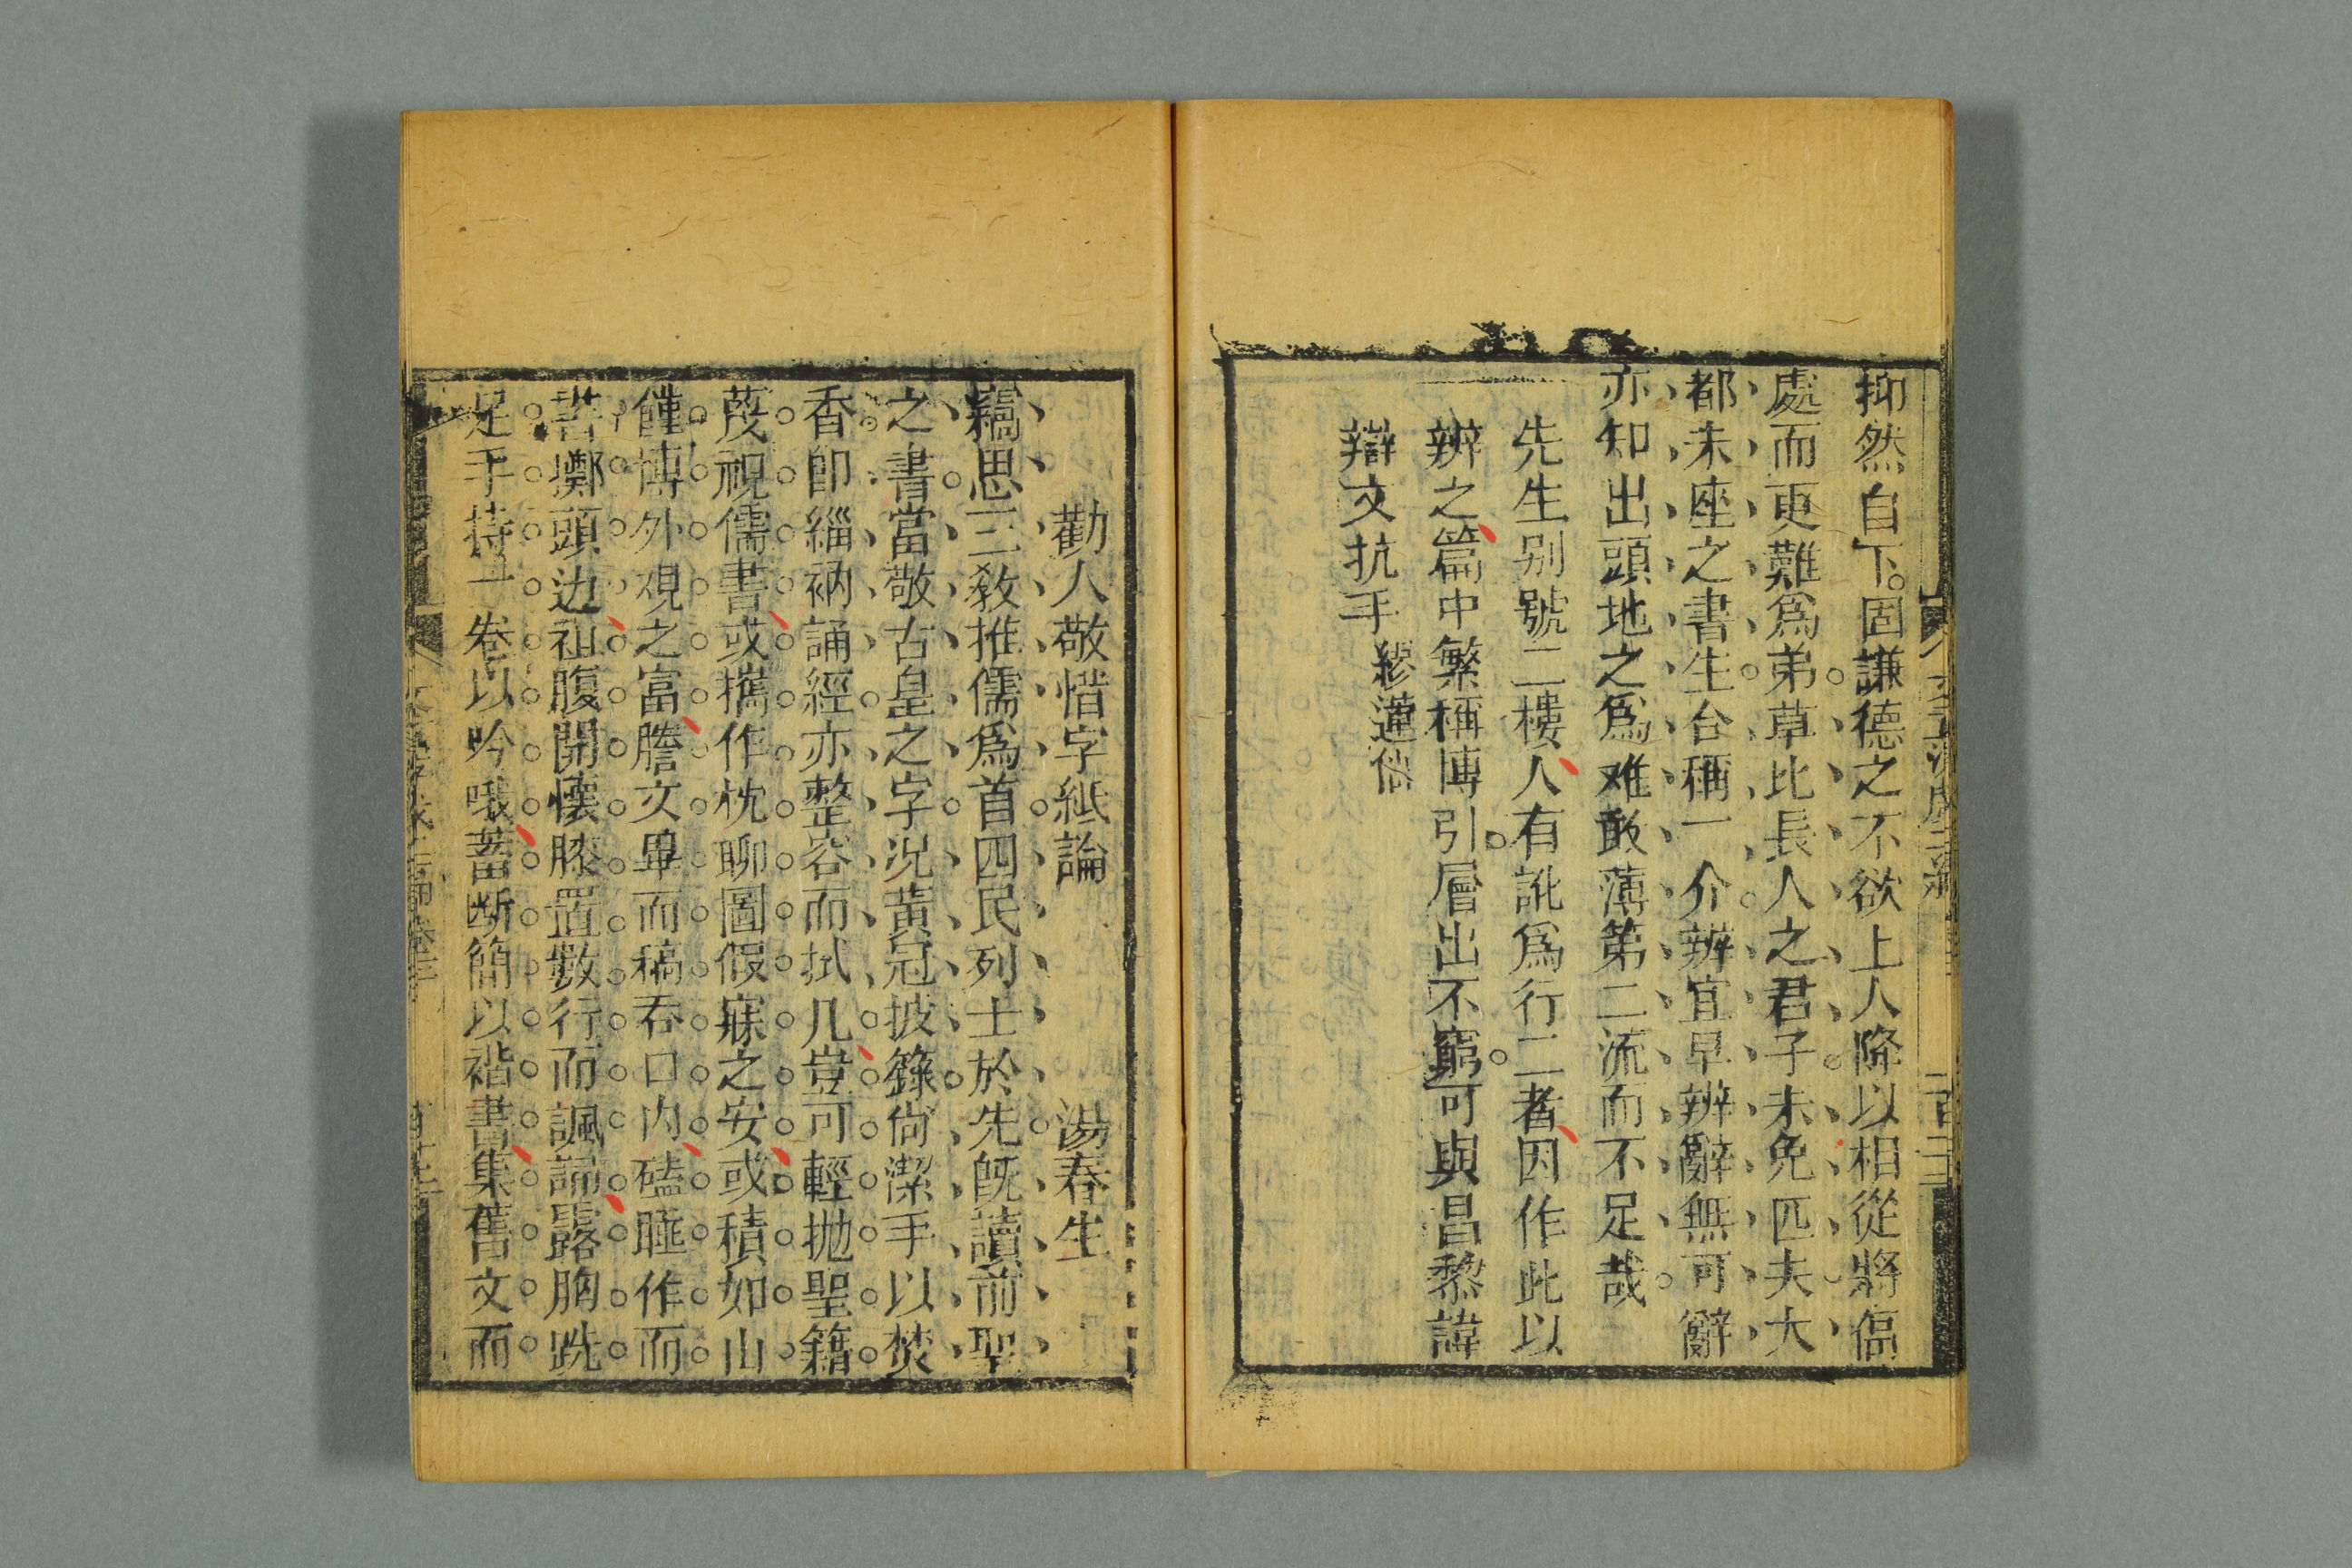 抑然自下。固謙德之不欲上人降以相從將偪
處而更難爲弟草比長人之君子未免匹夫大
都未座之書生台稱一介辨宜早辨辭無可辭
亦知出頭地之爲难敢薄第二流而不足哉
先生别號二樓人有訛爲行二者因作此以
辨之篇中繁稱博引層出不窮可與昌黎諱
辯文抗手 繆蓮仙
勸人敬惜字紙論 湯春生
竊思三教推儒爲首四民列士於先旣讀前聖
之書當敬古皇之字況黃冠披籙尙潔手以焚
香卽緇衲誦經亦整容而拭几豈可輕抛聖籍
茂視儒書或攜作枕聊圖假寐之安或積如山
僅博外觀之富謄文畢而稿吞口內磕睡作而
書擲頭边袒腹開懷膝置數行而諷誦露胸跣
足手持一卷以吟哦蓄断簡以褙書集舊文而